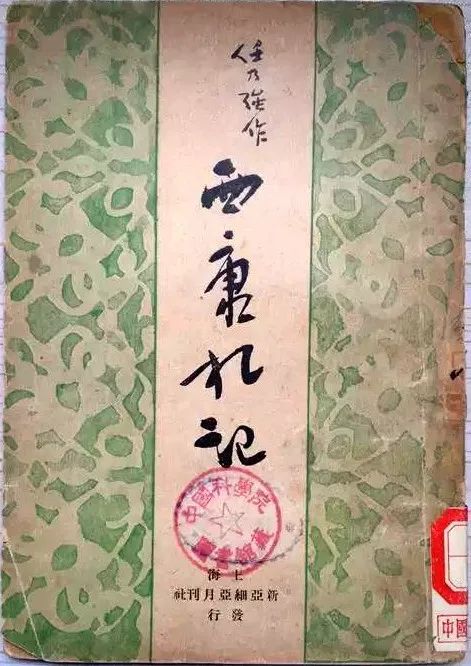 任乃强作
西康札記
中國科學院
圖書館藏
上海
新亞細亞月刊社
發行
中國